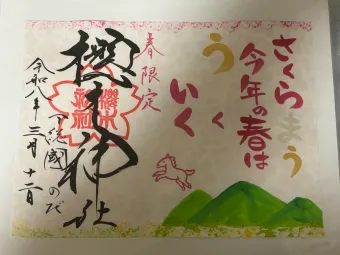 さくらまう
今年の春は
うく
いく
春限定
櫻木神社
櫻木神社
下総國 のだ
令和八年三月十二日